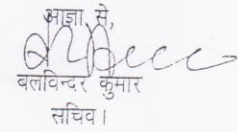 आज्ञा से,
बलविन्दर कुमार
सचिव।